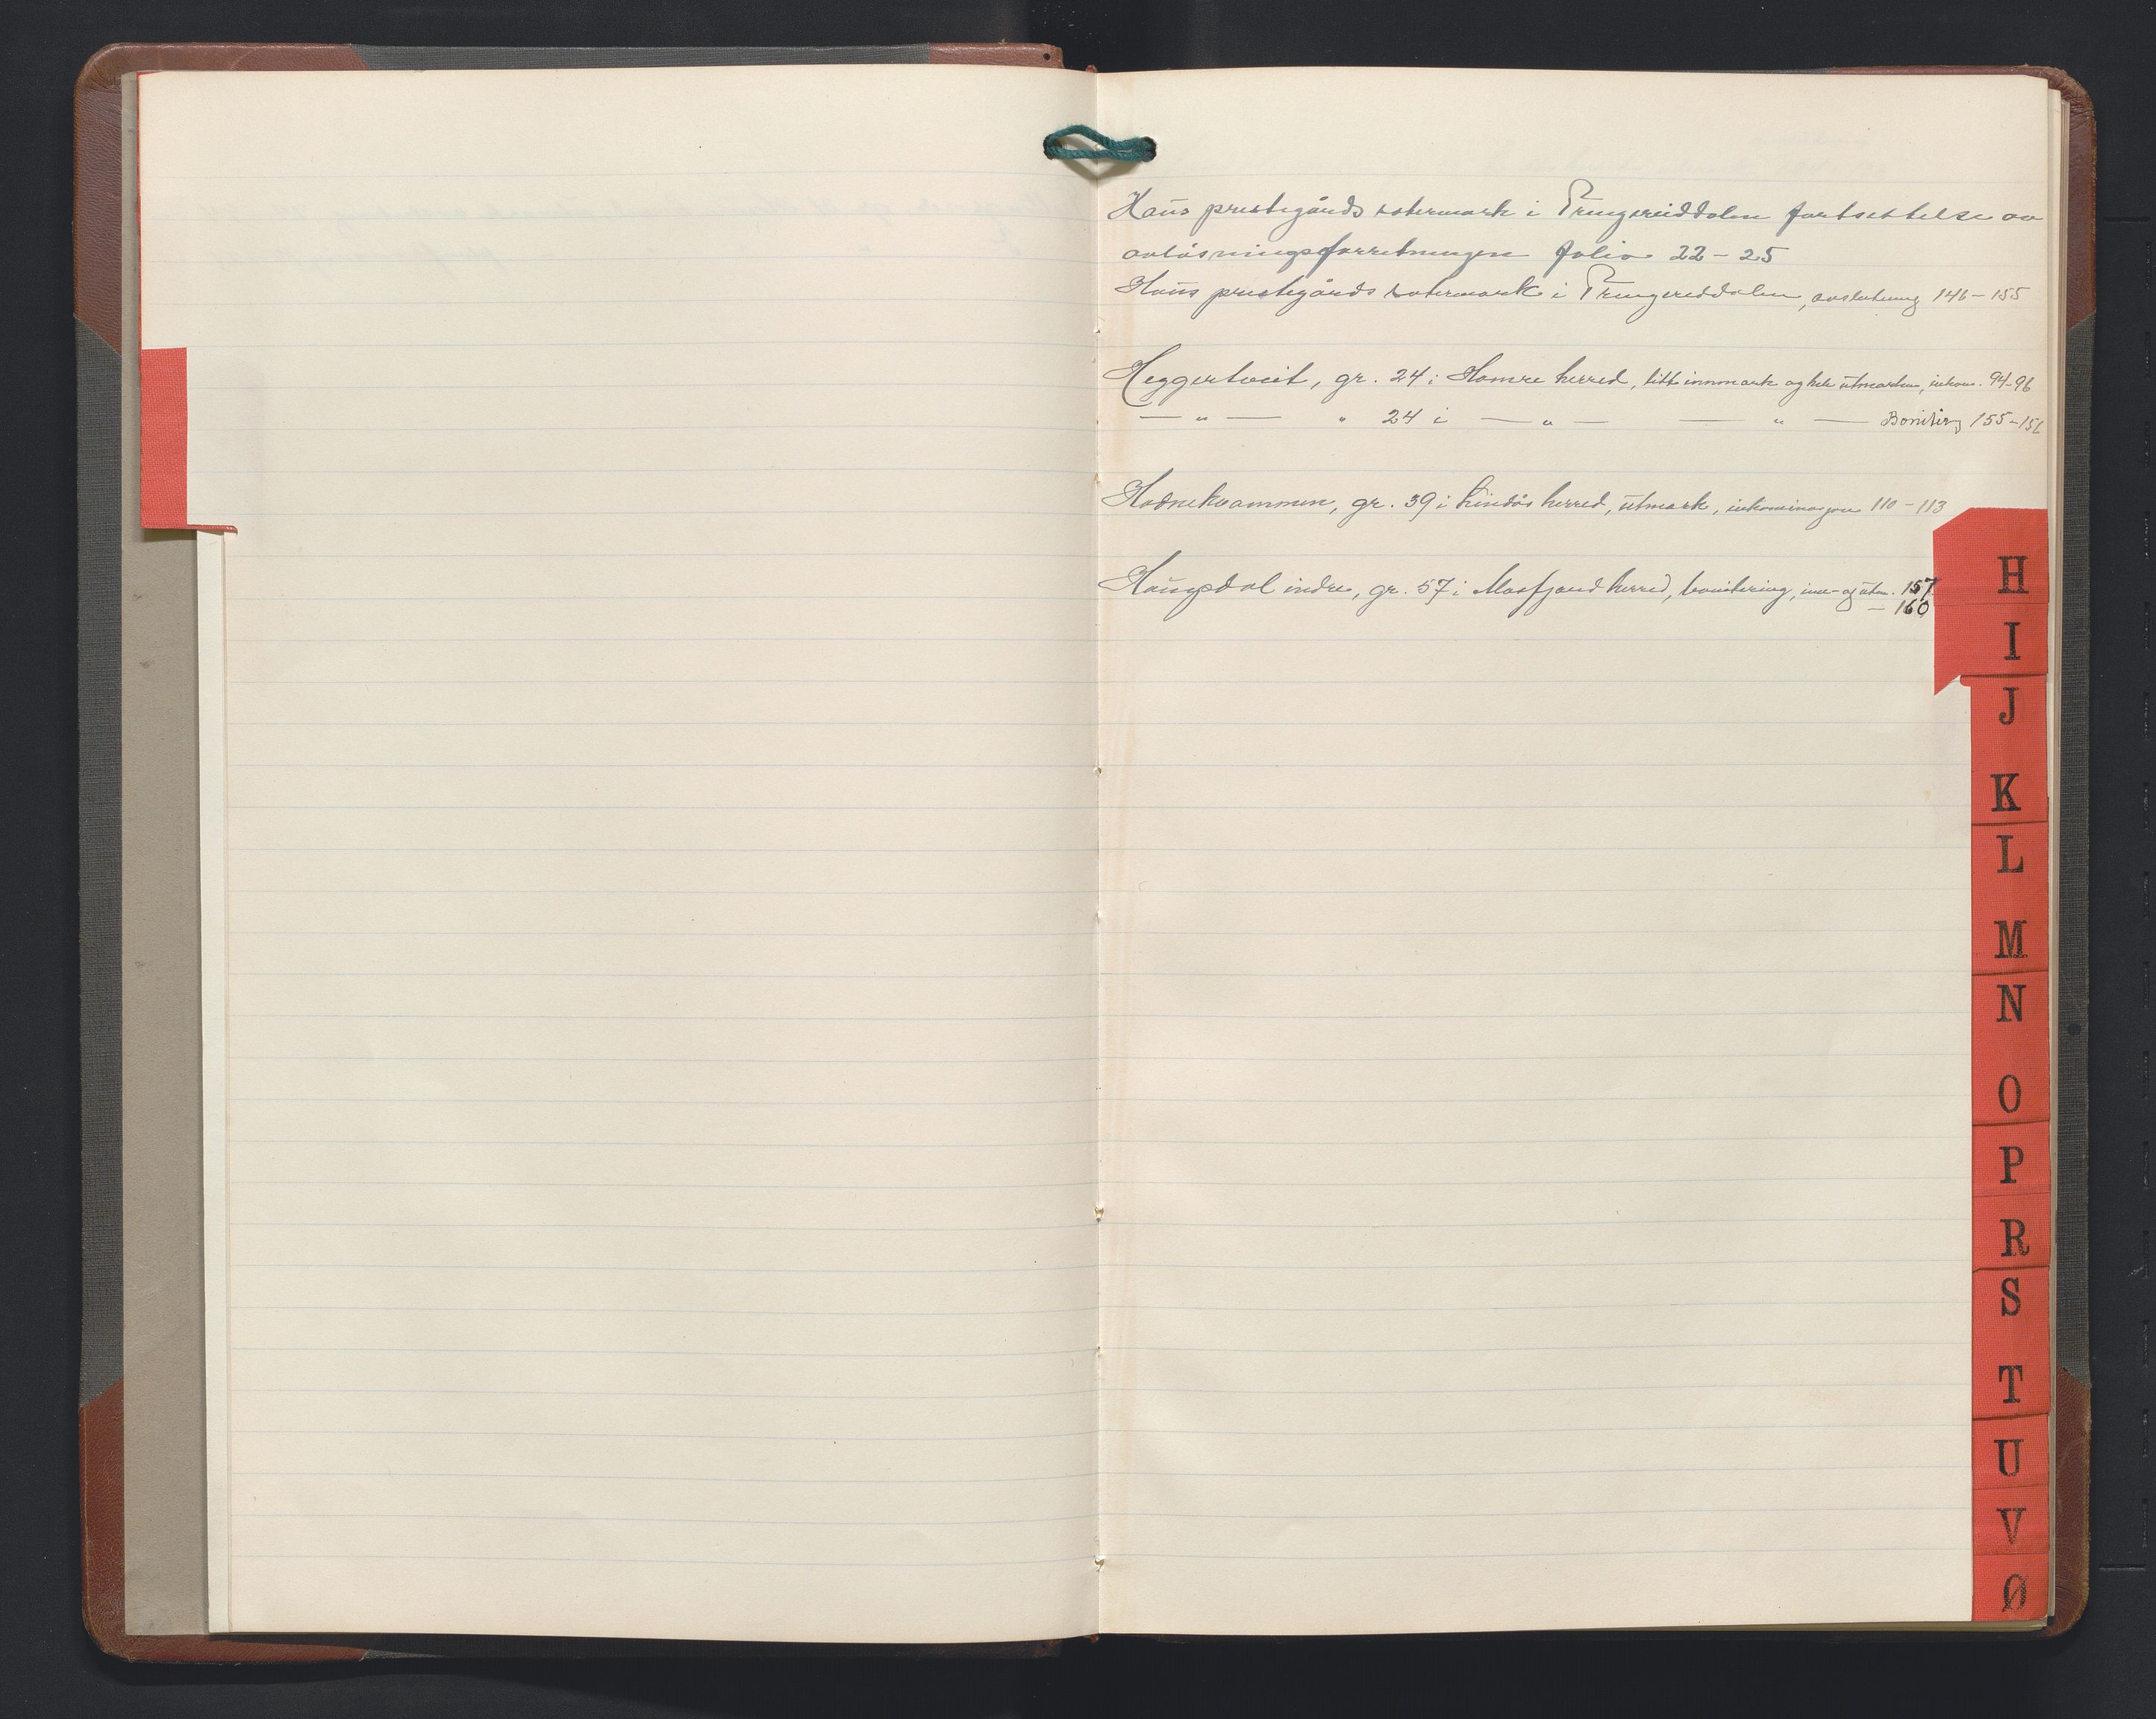 Haus prestegårds støtermark i Tringereiddalen fortsettelse av
avløsningsforretningen folio 22 - 25
Haus prestegårds støtermark i Tringereiddalen, avslutning 146 - 155
Heggertveit, gr. 24 i Hamre herred, litt innmark og hele utmarken, inkom. 94-96
— " — " 24 i — " — — " — Bonitering 155-156
Hodnekvammen, gr. 39 i Lindås herred, utmark, inkaminasjon 110 - 113
Haugsdal indre, gr. 57 i Masfjord herred, bonitering, inn- og utm. 157
— 160
H
I
J
K
L
M
N
O
P
R
S
T
U
V
Ø